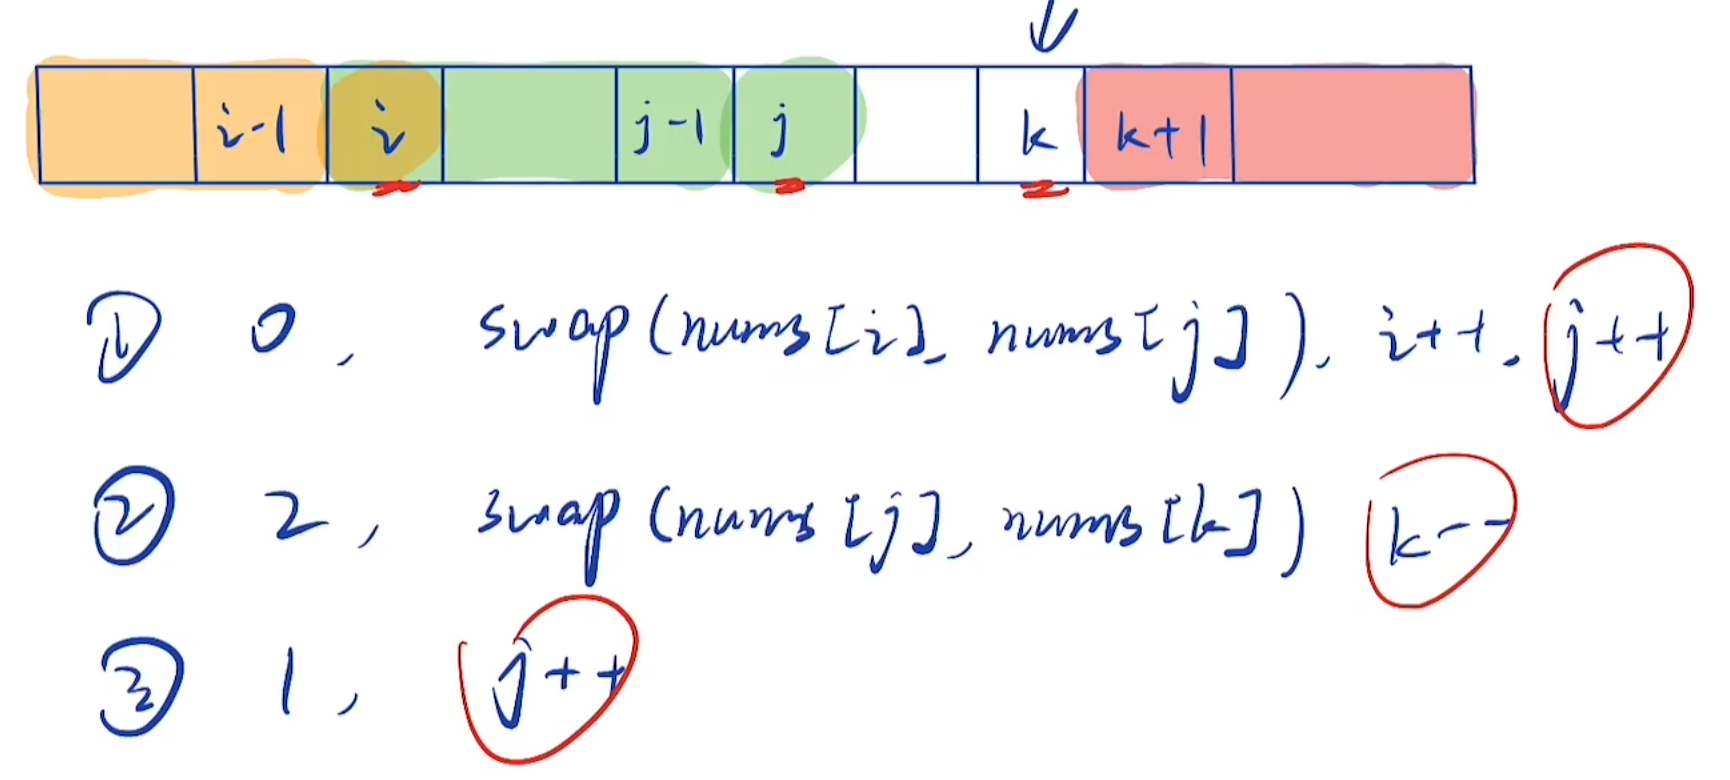 i-1 i j-1 j k k+1
① 0, swap(nums[i], nums[j]), i++, j++
② 2, swap(nums[j], nums[k]) k--
③ 1, j++